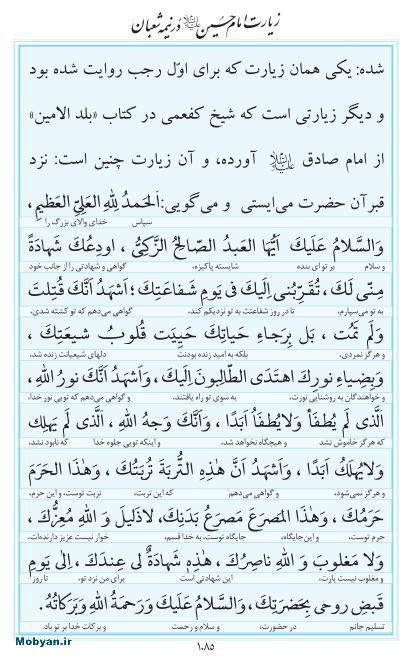 زیارت امام حسین علیه‌السلام در نیمه شعبان
شده: یکی همان زیارت که برای اوّل رجب روایت شده بود
و دیگر زیارتی است که شیخ کفعمی در کتاب «بلد الامین»
از امام صادق علیه‌السلام آورده، و آن زیارت چنین است: نزد
قبر آن حضرت می‌ایستی و می‌گویی: اَلْحَمْدُ لِلّٰهِ الْعَلِیِّ الْعَظِیمِ،
سپاس خدای والای بزرگ را
وَالسَّلامُ عَلَیْكَ اَیُّهَا الْعَبْدُ الصّالِحُ الزَّکِیُّ، اُودِعُكَ شَهادَةً
و سلام بر تو ای بنده شایسته پاکیزه، گواهی و شهادتی را از جانب خود
مِنّی لَكَ، تُقَرِّبُنی اِلَیْكَ فی یَوْمِ شَفاعَتِكَ؛ اَشْهَدُ اَنَّكَ قُتِلْتَ
به تو می‌سپارم، تا در روز شفاعتت به تو نزدیکم کند، گواهی می‌دهم که تو کشته شدی،
وَلَمْ تَمُتْ، بَلْ بِرَجاءِ حَیاتِكَ حَیِیَتْ قُلُوبُ شیعَتِكَ،
و هرگز نمردی، بلکه به امید زنده بودنت دلهای شیعیانت زنده شد،
وَبِضِیاءِ نُورِكَ اهْتَدَی الطّالِبُونَ اِلَیْكَ، وَاَشْهَدُ اَنَّكَ نُورُ اللهِ،
و خواهندگان به روشنایی نورت، به سوی تو راه یافتند، و گواهی می‌دهم که تویی نور خدا،
اَلَّذی لَمْ یُطْفَأْ وَلایُطْفَأُ اَبَدًا، وَاَنَّكَ وَجْهُ اللهِ، اَلَّذی لَمْ یَهْلِكْ
که هرگز خاموش نشد و هیچگاه نخواهد شد، و اینکه تویی جلوه خدا که نابود نشد،
وَلایُهْلَكُ اَبَدًا، وَاَشْهَدُ اَنَّ هٰذِهِ التُّرْبَةَ تُرْبَتُكَ، وَهٰذَا الْحَرَمَ
و هرگز نمی‌شود، و گواهی می‌دهم که این تربت، تربت توست، و این حرم،
حَرَمُكَ، وَهٰذَا الْمَصْرَعَ مَصْرَعُ بَدَنِكَ، لاذَلیلَ وَ اللهِ مُعِزُّكَ،
حرم توست، و این جایگاه، جایگاه توست، به خدا قسم، خوار نیست عزیز دارنده‌ات،
وَلا مَغْلُوبَ وَ اللهِ ناصِرُكَ، هٰذِهِ شَهادَةٌ لی عِنْدَكَ، اِلٰی یَوْمِ
و مغلوب نیست یارت، این شهادتی است برای من نزد تو، تا روز
قَبْضِ رُوحی بِحَضْرَتِكَ، وَالسَّلامُ عَلَیْكَ وَرَحْمَةُ اللهِ وَبَرَکاتُهُ.
تسلیم جانم در حضورت، و سلام و رحمت و برکات خدا بر تو باد.
۱۰۸۵
Mobyan.ir